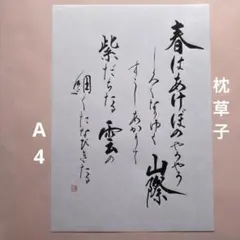 春はあけぼのやうやう
しろくなりゆく山際
すこしあかりて
紫だちたる雲の
細くたなびきたる
枕草子
A4